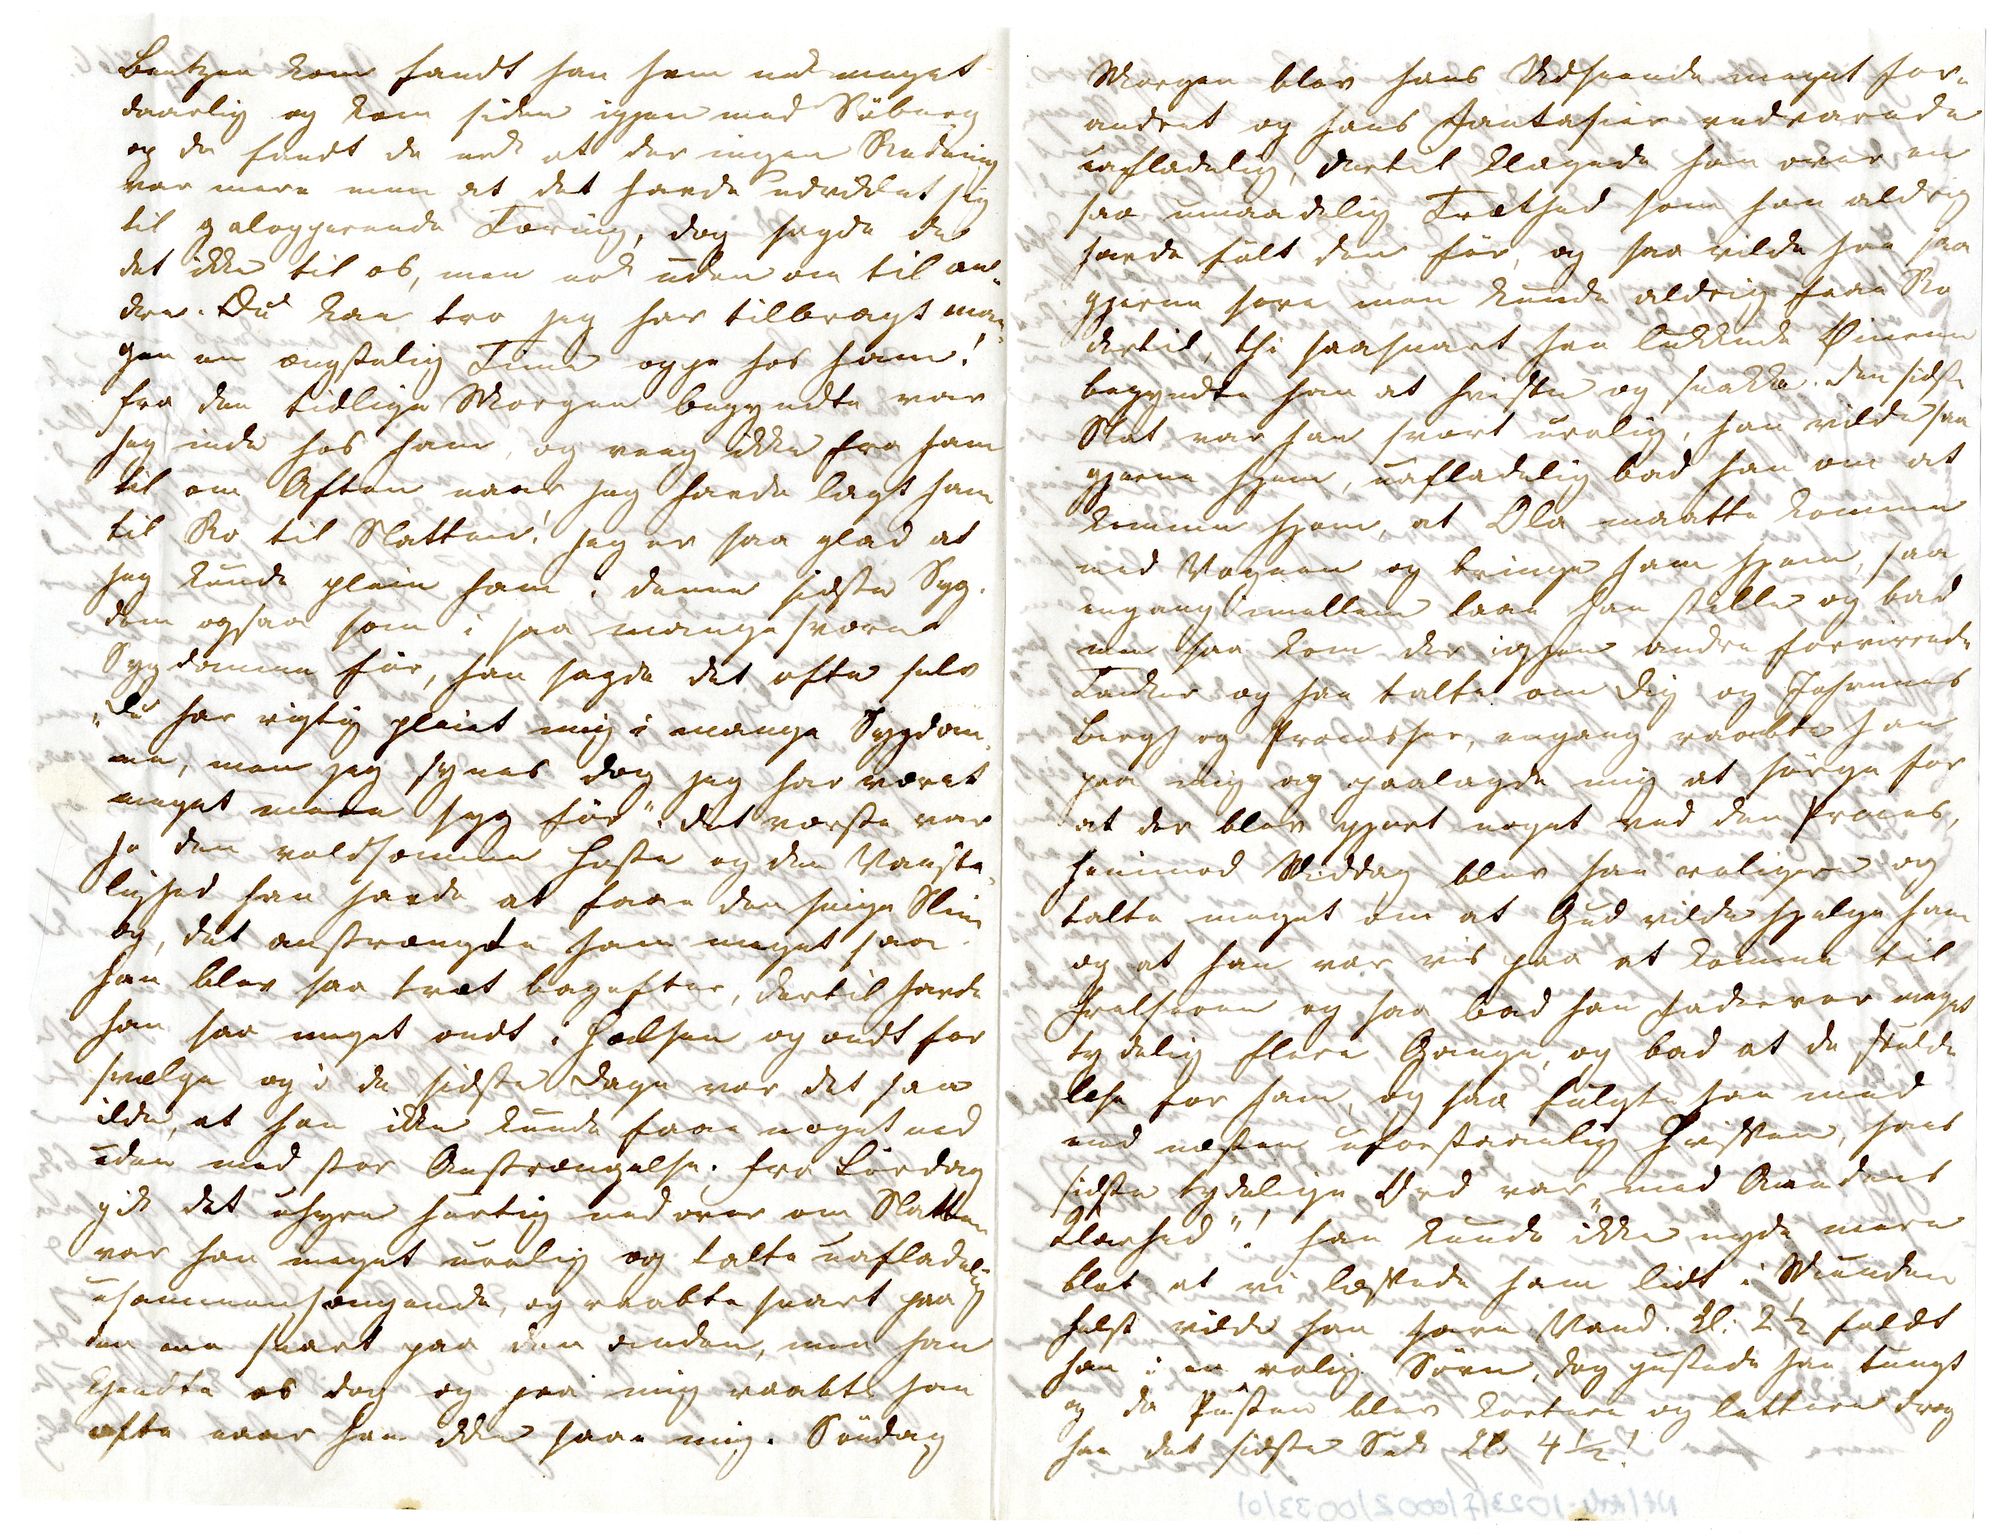 Bentzen kom fandt han ham nok meget
daarlig og kom siden igjen med Söberg
og da fandt de nok at der ingen Redning
var mere men at det havde udviklet sig
til galopperende Tæring, dog sagde de
det ikke til os, men nok uden om til an„
dre. Du kan tro jeg har tilbragt man„
gen en ængstelig Time oppe hos ham!
fra den tidlige Morgen begyndte var
jeg inde hos ham, og veeg ikke fra ham
til om Aften naar jeg havde lagt ham
til Ro til Natten! jeg er saa glad at
jeg kunde pleie ham i denne sidste Syg„
dom ogsaa som i saa mange svære
Sygdomme för, han sagde det ofte selv
„Du har rigtig pleiet mig i mange Sygdom„
me, men jeg synes dog jeg har været
meget mere syg för". det værste var
jo den voldsomme Hoste og den Vanske„
lighed han havde at faae den seige Sliim
op, det anstrængte ham meget saa
han blev saa træt bagefter, dertil havde
han saa meget ondt i Halsen og ondt for
svælge og i de sidste Dage var det saa
ilde, at han ikke kunde faae noget ned
uden med stor Anstrængelse. fra Lördag
gik det uhyre hurtig nedover om Natten
var han meget urolig og talte uafladelig
usammenhængende, og raabte snart paa
den ene snart paa den anden, men han
kjendte os dog og paa mig raabte han
ofte naar han ikke saae mig. Söndag
Morgen blev hans Udseende meget for„
andret og hans Fantasier vedvarede
uafladelig, dertil klagede han over en
saa umaadelig Træthed som han aldrig
havde fölt den för, og saa vilde han saa
gjerne sove men kunde aldrig faae Ro
dertil, thi saasnart han lukkede Öinene
begyndte han at hviske og snakke. den sidste
Nat var han svært urolig, han vilde saa
gjerne hjem, uafladelig bad han om at
komme hjem, at Ola maatte komme
med Vognen og bringe ham hjem, saa
engang imellem laae han stille og bad
men saa kom der igjen andre forvirrede
Tanker og han talte om Dig og Johannes
Bergh og Processer, engang raabte han
paa mig og paalagde mig at sörge for
at der blev gjort noget ved den Proces,
henimod Middag blev han roligere og
talte meget om at Gud vilde hjelpe ham
og at han var vis paa at komme til
Frelseren og saa bad han Fadervor meget
tydelig flere Gange, og bad at de skulde
læse for ham, og saa fulgte han med
med næsten uforstaaelig Hvisken, hans
sidste tydelige Ord var „med Aandens
Klarhed"! han kunde ikke nyde mere
blot at vi læskede ham lidt i Munden
helst vilde han have Vand. Kl: 2½ faldt
han i en rolig Sövn, dog pustede han tungt
og da Pusten blev kortere og lettere drog
han det sidste Suk Kl 4½!